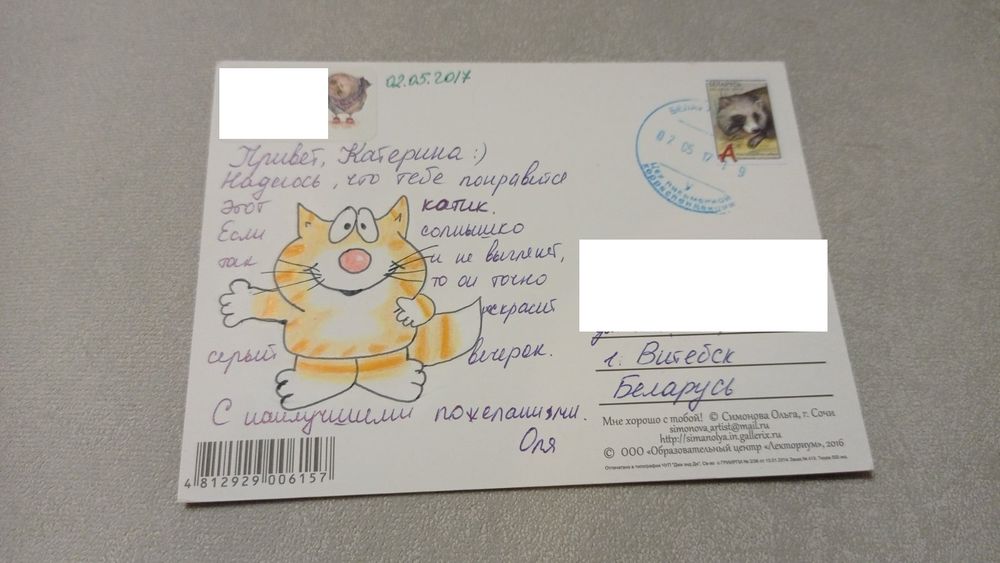 02.05.2017
БЕЛАРУСЬ
A
02 05 17
9
Привет, Катерина :)
Надеюсь, что тебе понравится
этот котик.
Если солнышко
так и не выглянет,
то он точно
скрасит
серый вечерок.
С наилучшими пожеланиями.
Оля
г. Витебск
Беларусь
Мне хорошо с тобой! © Симонова Ольга, г. Сочи
simonova.artist@mail.ru
http://simanolya.in.gallerix.ru
© ООО «Образовательный центр «Лекториум», 2016
4 812929 006157